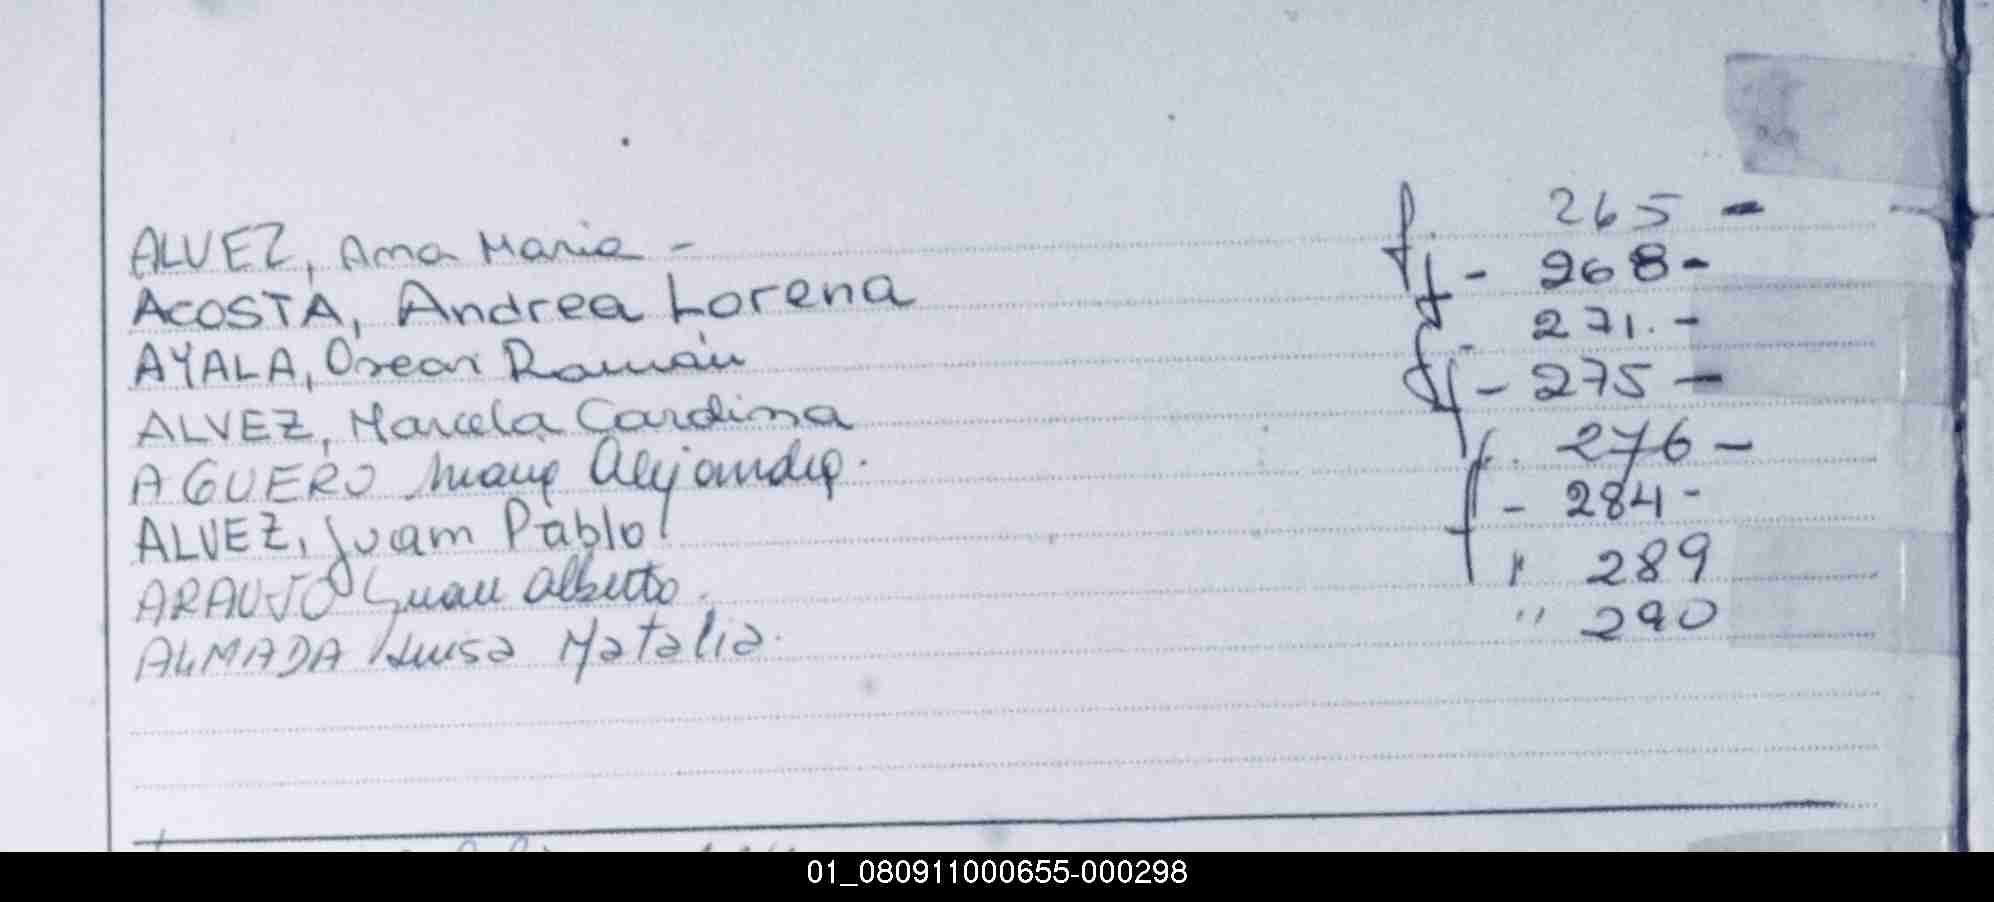 ALVEZ, Ana Maria - f. 265 -
ACOSTA, Andrea Lorena f - 268 -
AYALA, Oscar Ramón f - 271. -
ALVEZ, Marcela Cardina f - 275 -
AGUERO Alejandro. f. 276 -
ALVEZ, Juan Pablo f - 284 -
ARAUJO Juan Alberto. " 289
ALMADA Luisa Natalia. " 290
01_080911000655-000298